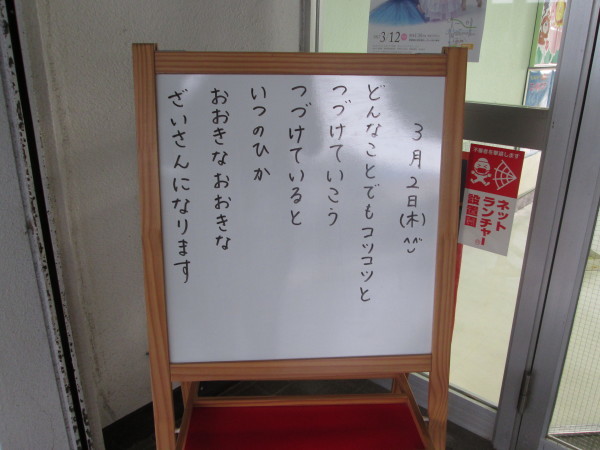 3月2日(木)^^
どんなことでもコツコツと
つづけていこう
つづけていると
いつのひか
おおきなおおきな
ざいさんになります
3・12
ネット
ランチャー
設置園